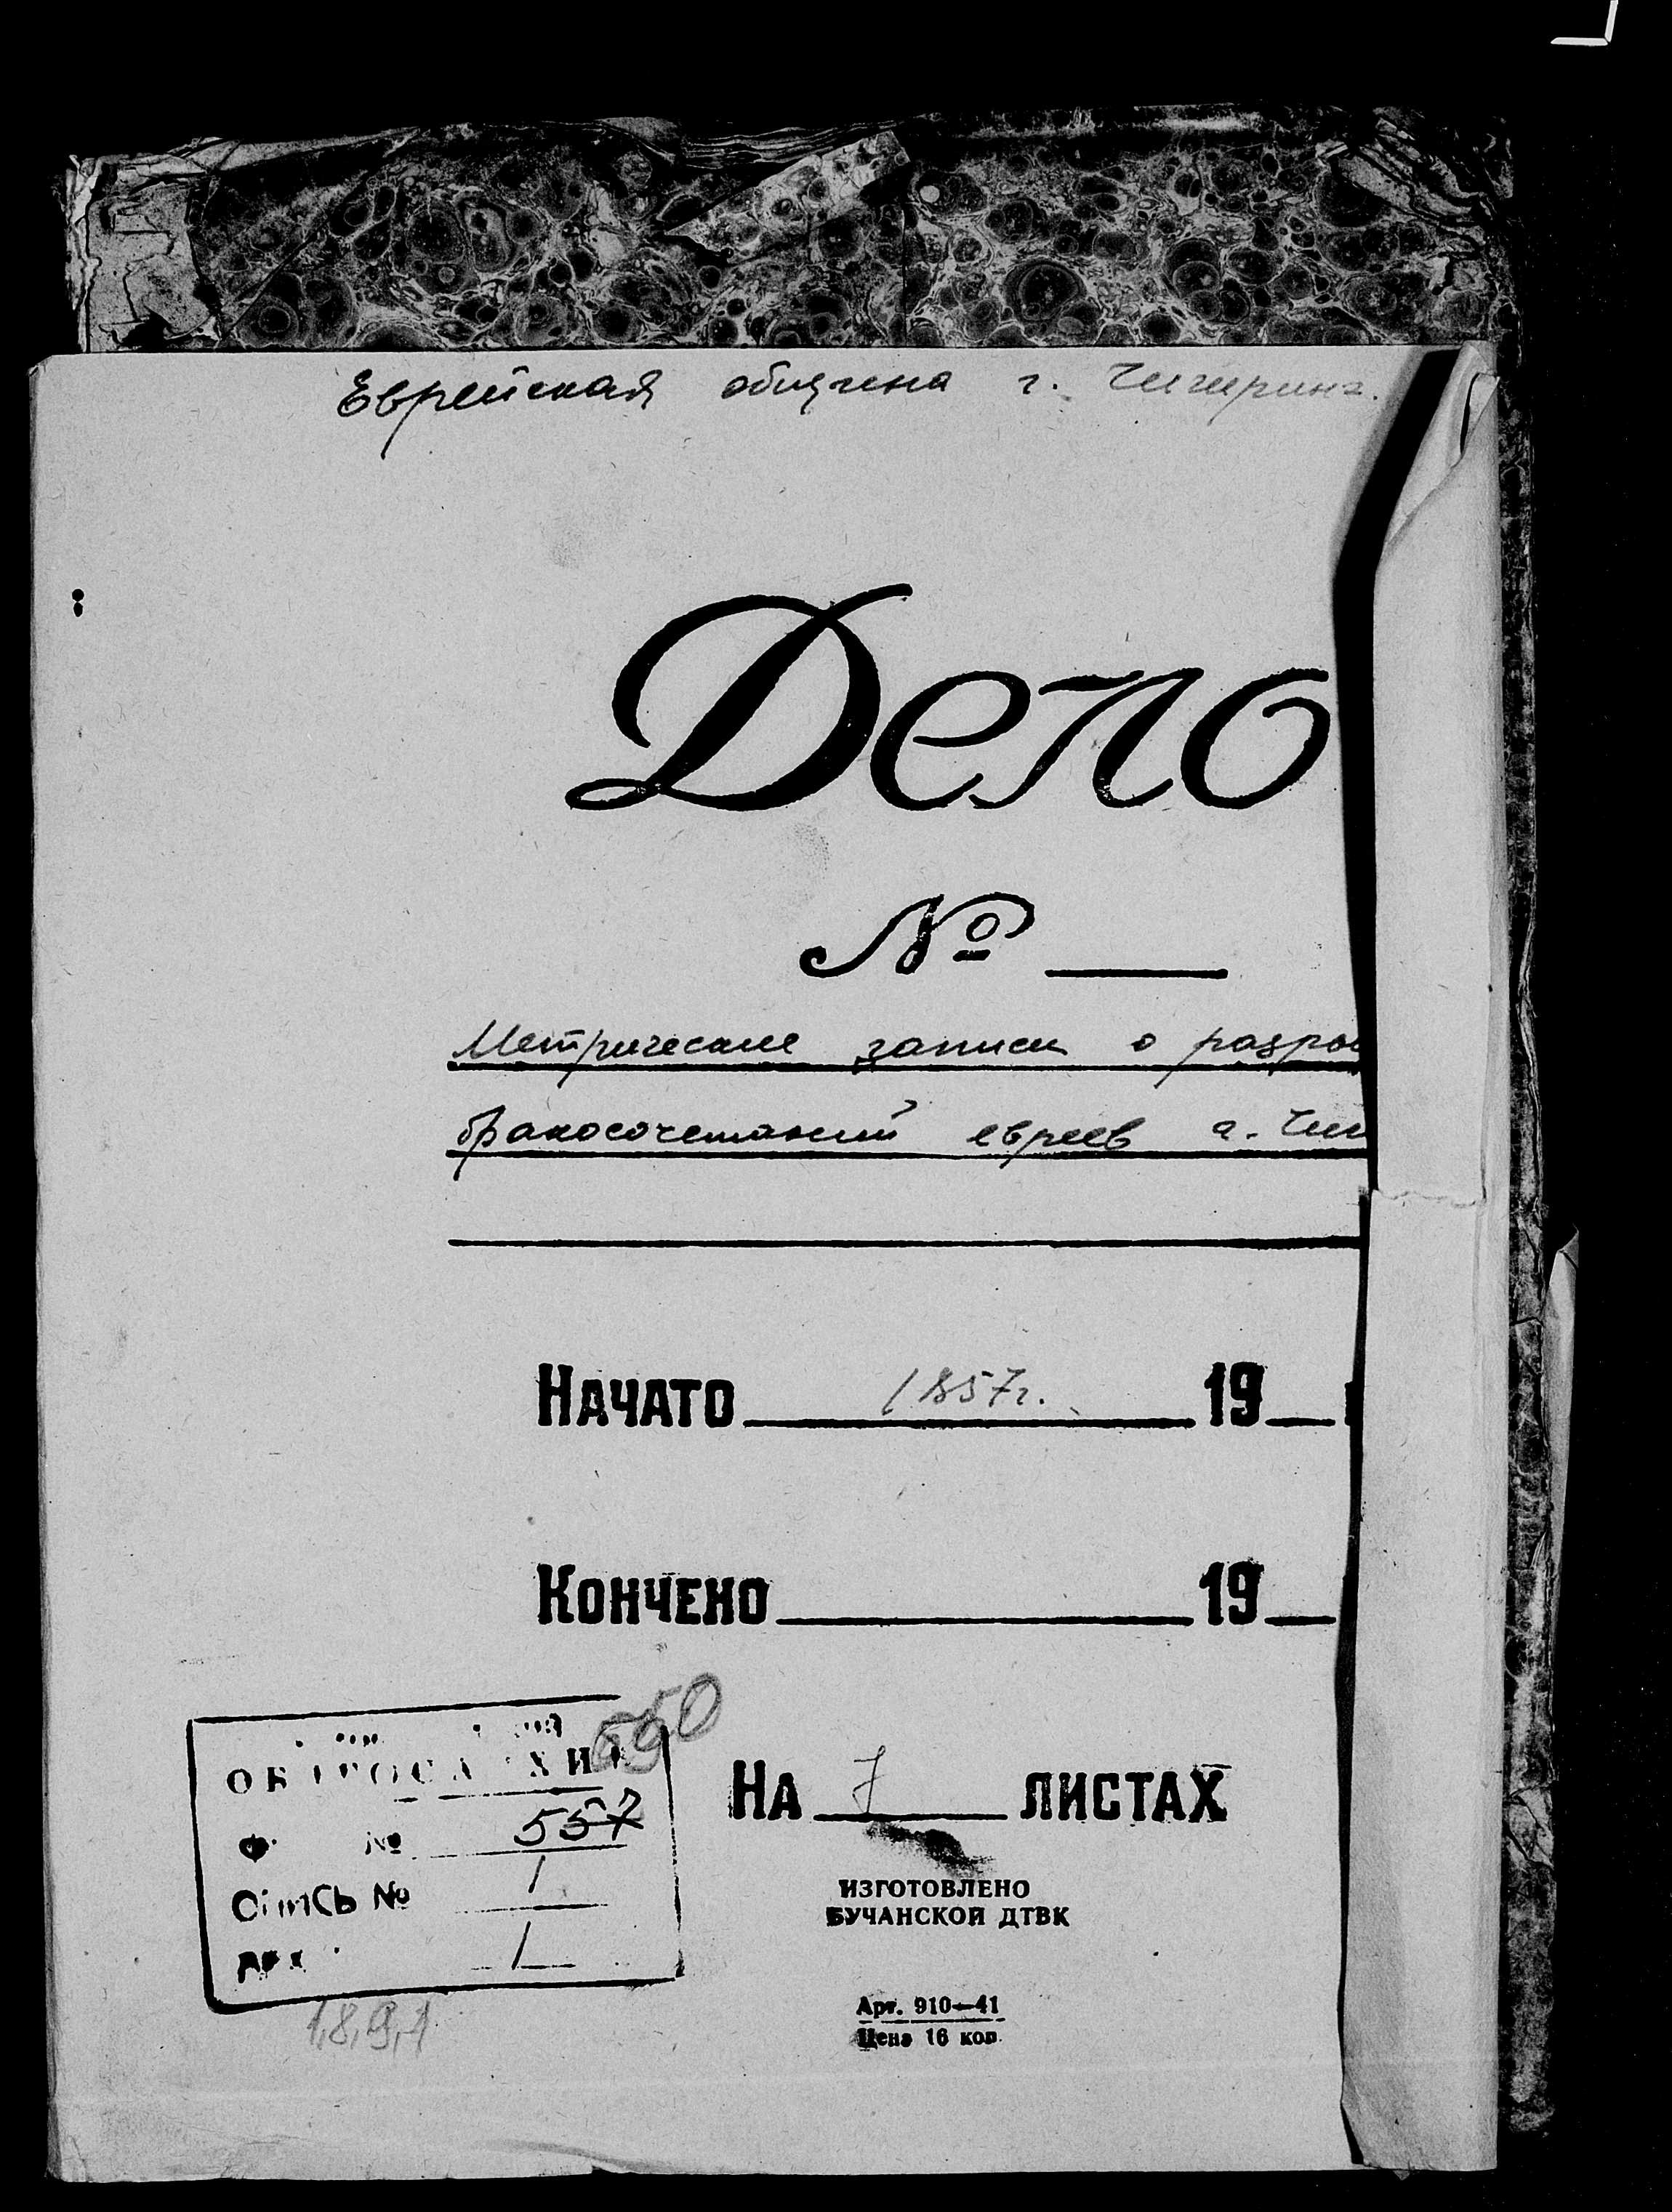 Еврейская община г. Чигирина.
Дело
№
Метрические записи о
бракосочетаний евреев г. Чиг
НАЧАТО 1857г. 19
КОНЧЕНО 19
550
Ф. № 557
Опись № 1
1
НА 7 ЛИСТАХ
ИЗГОТОВЛЕНО
БУЧАНСКОЙ ДТВК
Арт. 910—41
Цена 16 коп.
1,8,9,1